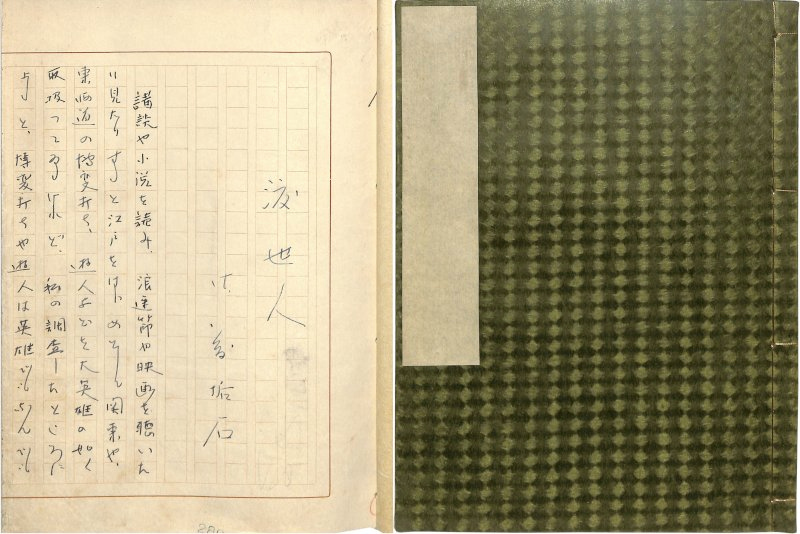 渡世人
佐藤垢石
講談や小説を読み、浪速節や映画を聴いた
り見たりすると江戸をはじめとし関東や、
東海道の博奕打ち、遊人などを大英雄の如く
取扱つてゐるけれど、私の調査したところに
よると、博奕打ちや遊人は英雄でもなんでも